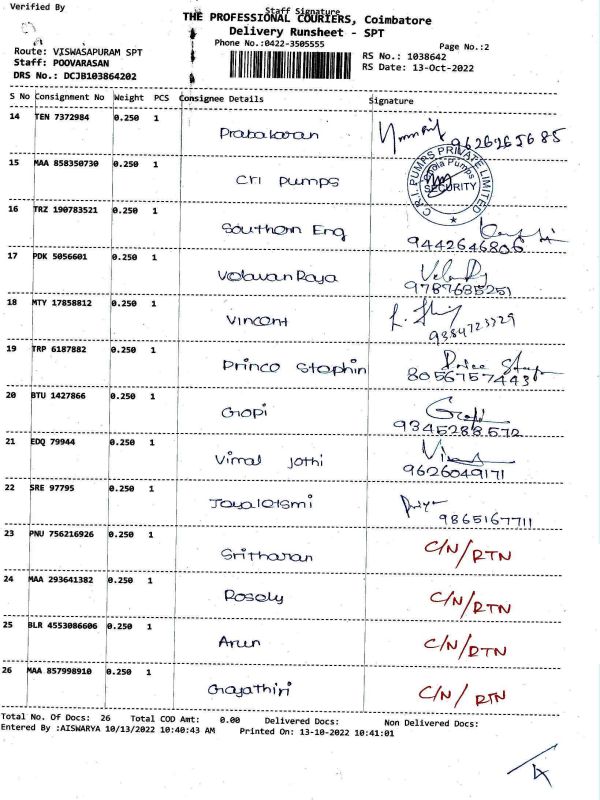 Verified By Staff Signature
THE PROFESSIONAL COURIERS, Coimbatore
Delivery Runsheet - SPT
Phone No.:0422-3505555 Page No.:2
Route: VISWASAPURAM SPT RS No.: 1038642
Staff: POOVARASAN RS Date: 13-Oct-2022
DRS No.: DCJB103864202
S No Consignment No Weight PCS Consignee Details Signature
14 TEN 7372984 0.250 1 Prabakaran 9626265685
15 MAA 858350730 0.250 1 CRI Pumps C.R.I. PUMPS PRIVATE LIMITED SECURITY
16 TRZ 190783521 0.250 1 Southern Eng 9442646806
17 PDK 5056601 0.250 1 Velavan Raja 9787685251
18 MTY 17858812 0.250 1 Vincent 9384723329
19 TRP 6187882 0.250 1 Prince Stephin 8056757443
20 BTU 1427866 0.250 1 Gopi 9345288572
21 EDQ 79944 0.250 1 Vimal Jothi 9626049171
22 SRE 97795 0.250 1 Jayaletsmi Priya 9865167711
23 PNU 756216926 0.250 1 Sritharan C/N/RTN
24 MAA 293641382 0.250 1 Rosely C/N/RTN
25 BLR 4553086606 0.250 1 Arun C/N/RTN
26 MAA 857998910 0.250 1 Gayathiri C/N/RTN
Total No. Of Docs: 26 Total COD Amt: 0.00 Delivered Docs: Non Delivered Docs:
Entered By :AISWARYA 10/13/2022 10:40:43 AM Printed On: 13-10-2022 10:41:01